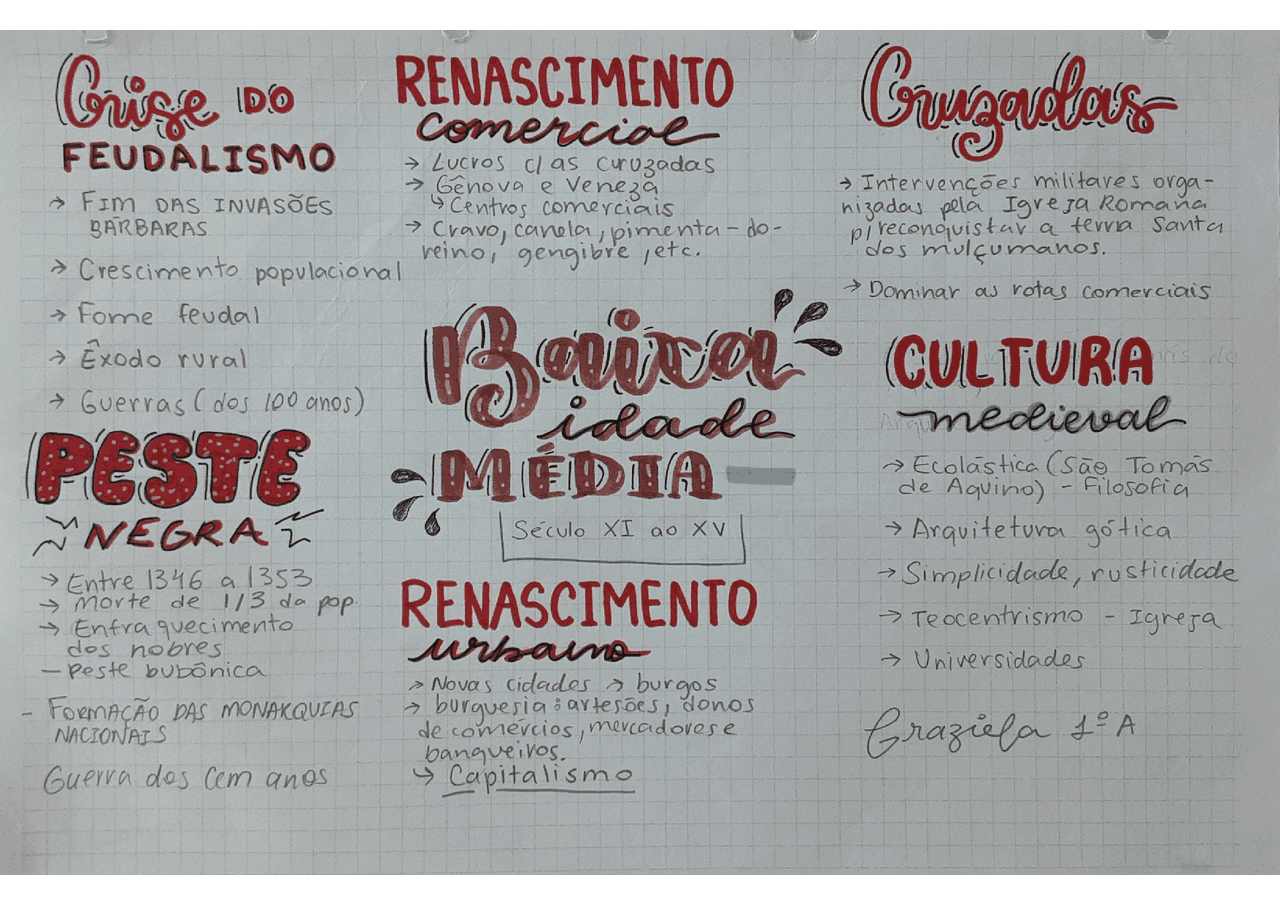 Crise DO
FEUDALISMO
→ FIM DAS INVASÕES
BÁRBARAS
→ Crescimento populacional
→ Fome feudal
→ Êxodo rural
→ Guerras (dos 100 anos)
PESTE
NEGRA
→ Entre 1346 a 1353
→ Morte de 1/3 da pop.
→ Enfraquecimento
dos nobres
– Peste bubônica
– FORMAÇÃO DAS MONARQUIAS
NACIONAIS
Guerra dos Cem anos
RENASCIMENTO
comercial
→ Lucros c/ as curuzadas
→ Gênova e Veneza
↳ Centros comerciais
→ Cravo, canela, pimenta-do-
reino, gengibre, etc.
Baixa
idade
MÉDIA
Século XI ao XV
RENASCIMENTO
urbano
→ Novas cidades → burgos
→ burguesia: artesões, donos
de comércios, mercadores e
banqueiros.
↳ Capitalismo
Cruzadas
→ Intervenções militares orga-
nizadas pela Igreja Romana
p/ reconquistar a terra Santa
dos mulçumanos.
→ Dominar as rotas comerciais
CULTURA
medieval
→ Ecolástica (São Tomás
de Aquino) – Filosofia
→ Arquitetura gótica
→ Simplicidade, rusticidade
→ Teocentrismo – Igreja
→ Universidades
Graziela 1º A